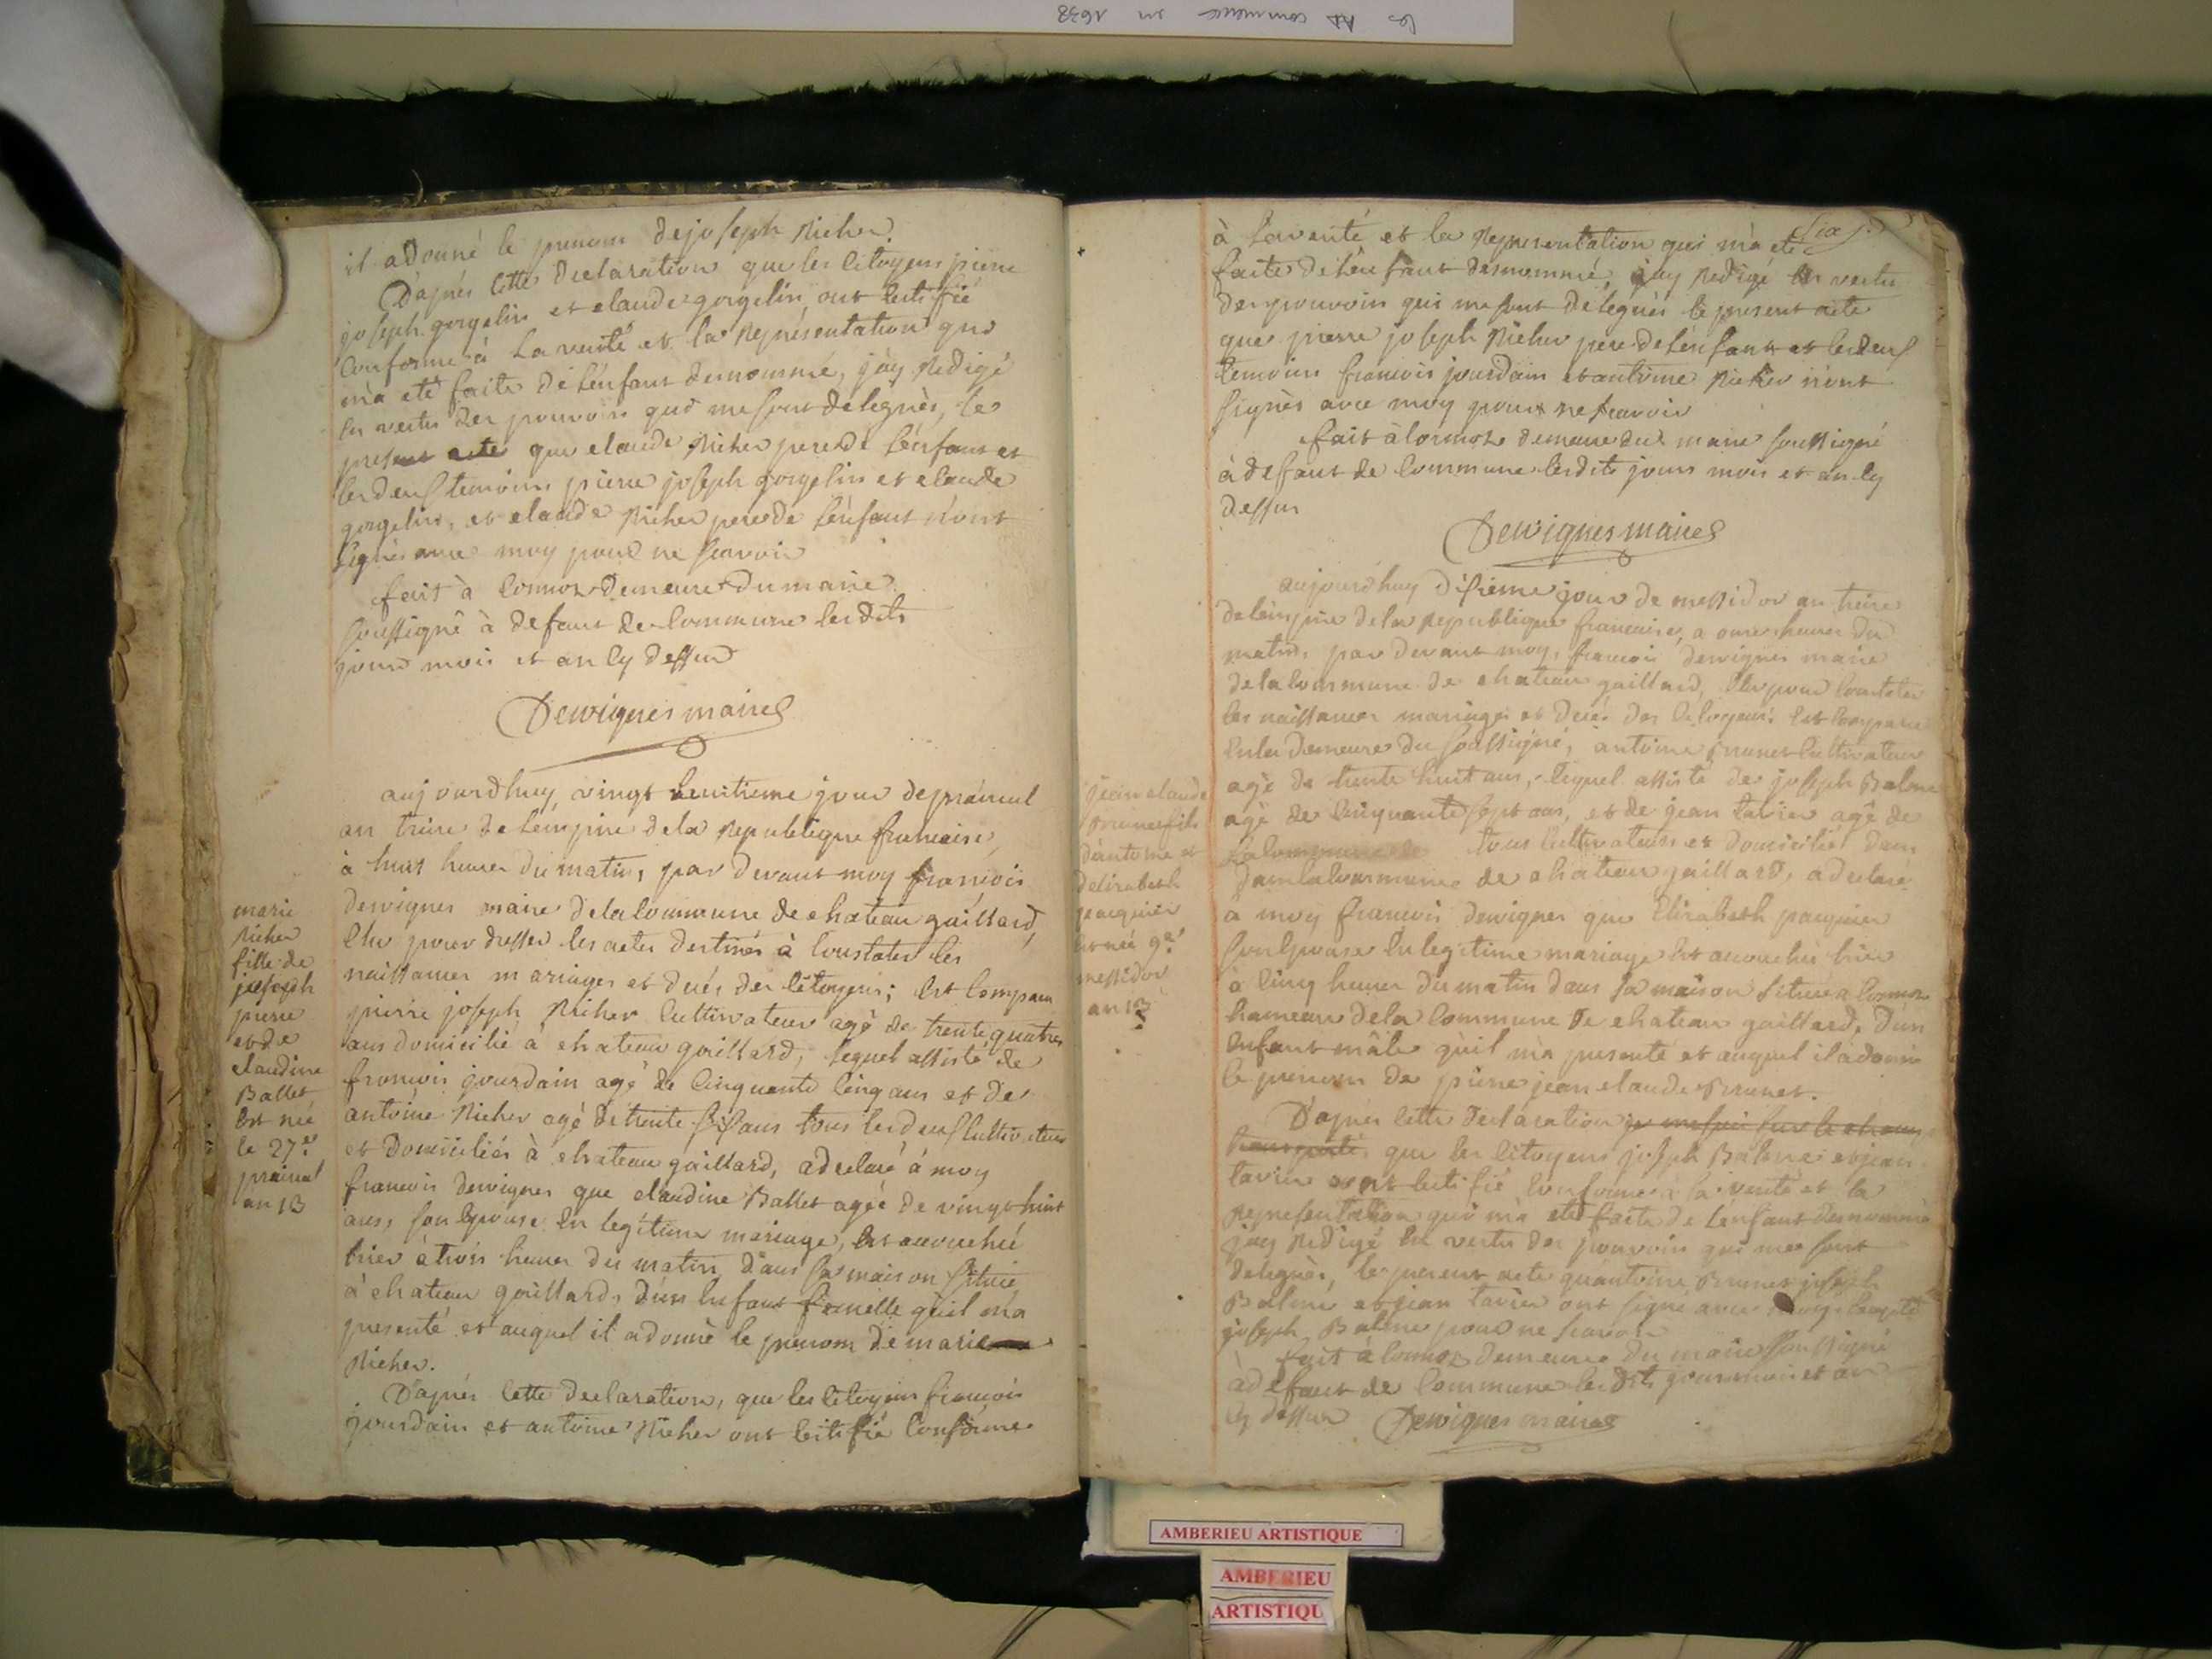 les  commence en 1698
il a donné le prenom de joseph Richer
D'aprés cette declaration que les citoyens pierre
joseph gorgelin et claude gorgelin ont certifié
conforme à la verité et la representation qui
m'a eté faite de lénfant denommé, j'ay redigé
en vertu des pouvoirs qui me sont delegués, le
present acte que claude Richer pere de lénfant et
les deux temoins pierre joseph gorgelin et claude
gorgelin, et claude Richer pere de lénfant n'ont
signés avec moy pour ne scavoir
fait à cormoz demeure du maire
soussigné à defaut de commune les dits
jours mois et an cy dessus
Dervignes maire
aujourdhuy, vingt huitieme jour de prairial
an treize de lempire de la republique francaise,
à huit heures du matin, par devant moy françois
dervignes maire de la commune de chateau gaillard,
élu pour dresser les actes destinés à constater les
naissances mariages et decés des citoyens; est comparu
pierre joseph Richer cultivateur agé de trente quatre
ans domicilié à chateau gaillard, lequel assisté de
francois jourdain agé de cinquante cinq ans et de
antoine Richer agé de trente six ans tous les deux cultivateurs
et domiciliés à chateau gaillard, a declaré à moy
francois dervignes que claudine Ballet agée de vingt huit
ans, son épouse en legitime mariage, est accouchée
hier à trois heures du matin dans sa maison située
à chateau gaillard, d'un enfant femelle qu'il m'a
presenté et auquel il a donné le prenom de marie
Richer.
D'aprés cette declaration, que les citoyens francois
jourdain et antoine Richer ont certifié conforme
marie
Richer
fille de
joseph
pierre
et de
claudine
Ballet
est née
le 27e
prairial
an 13
six
à la verité et la representation qui m'a eté
faite de lénfant denommé, j'ay redigé en vertu
des pouvoirs qui me sont delegués le present acte
que pierre joseph Richer pere de lénfant et les deux
temoins francois jourdain et antoine Richer n'ont
signés avec moy pour ne scavoir
fait à cormoz demeure du maire soussigné
à defaut de commune les dits jours mois et an cy
dessus
Dervignes maire
aujourdhuy dixieme jour de messidor an treize
de lempire de la republique francaise, a onze heures du
matin, par devant moy, francois dervignes maire
de la commune de chateau gaillard, élu pour constater
les naissances mariages et decés des citoyens; est comparu
en la demeure du soussigné, antoine Brunet cultivateur
agé de trente huit ans, lequel assisté de joseph Balme
agé de cinquante sept ans, et de jean tavier agé de
tous cultivateurs et domiciliés dans
dans la commune de chateau gaillard, a declaré
à moy francois dervignes que Elizabeth pacquier
son epouse en legitime mariage est accouchée hier
à cinq heures du matin dans sa maison située a cormoz
hameau de la commune de chateau gaillard, d'un
enfant mâle qu'il m'a presenté et auquel il à donné
le prenom de pierre jean claude Brunet.
D'aprés cette declaration je me suis sur le champ
transporté, que les citoyens joseph Balme et jean
tavier ont certifié conforme à la verité et la
representation qui m'a eté faite de lénfant denommé
j'ay redigé en vertu des pouvoirs qui me sont
delegués, le present acte qu'antoine Brunet joseph
Balme et jean tavier ont signé avec moy excepté
joseph Balme pour ne scavoir
fait à cormoz demeure du maire soussigné
à defaut de commune les dits jours mois et an
cy dessus Dervignes maire
jean claude
Brunet fils
d'antoine et
d'elizabeth
pacquier
est né 9e
messidor
an 13
AMBERIEU ARTISTIQUE
AMBERIEU
ARTISTIQU